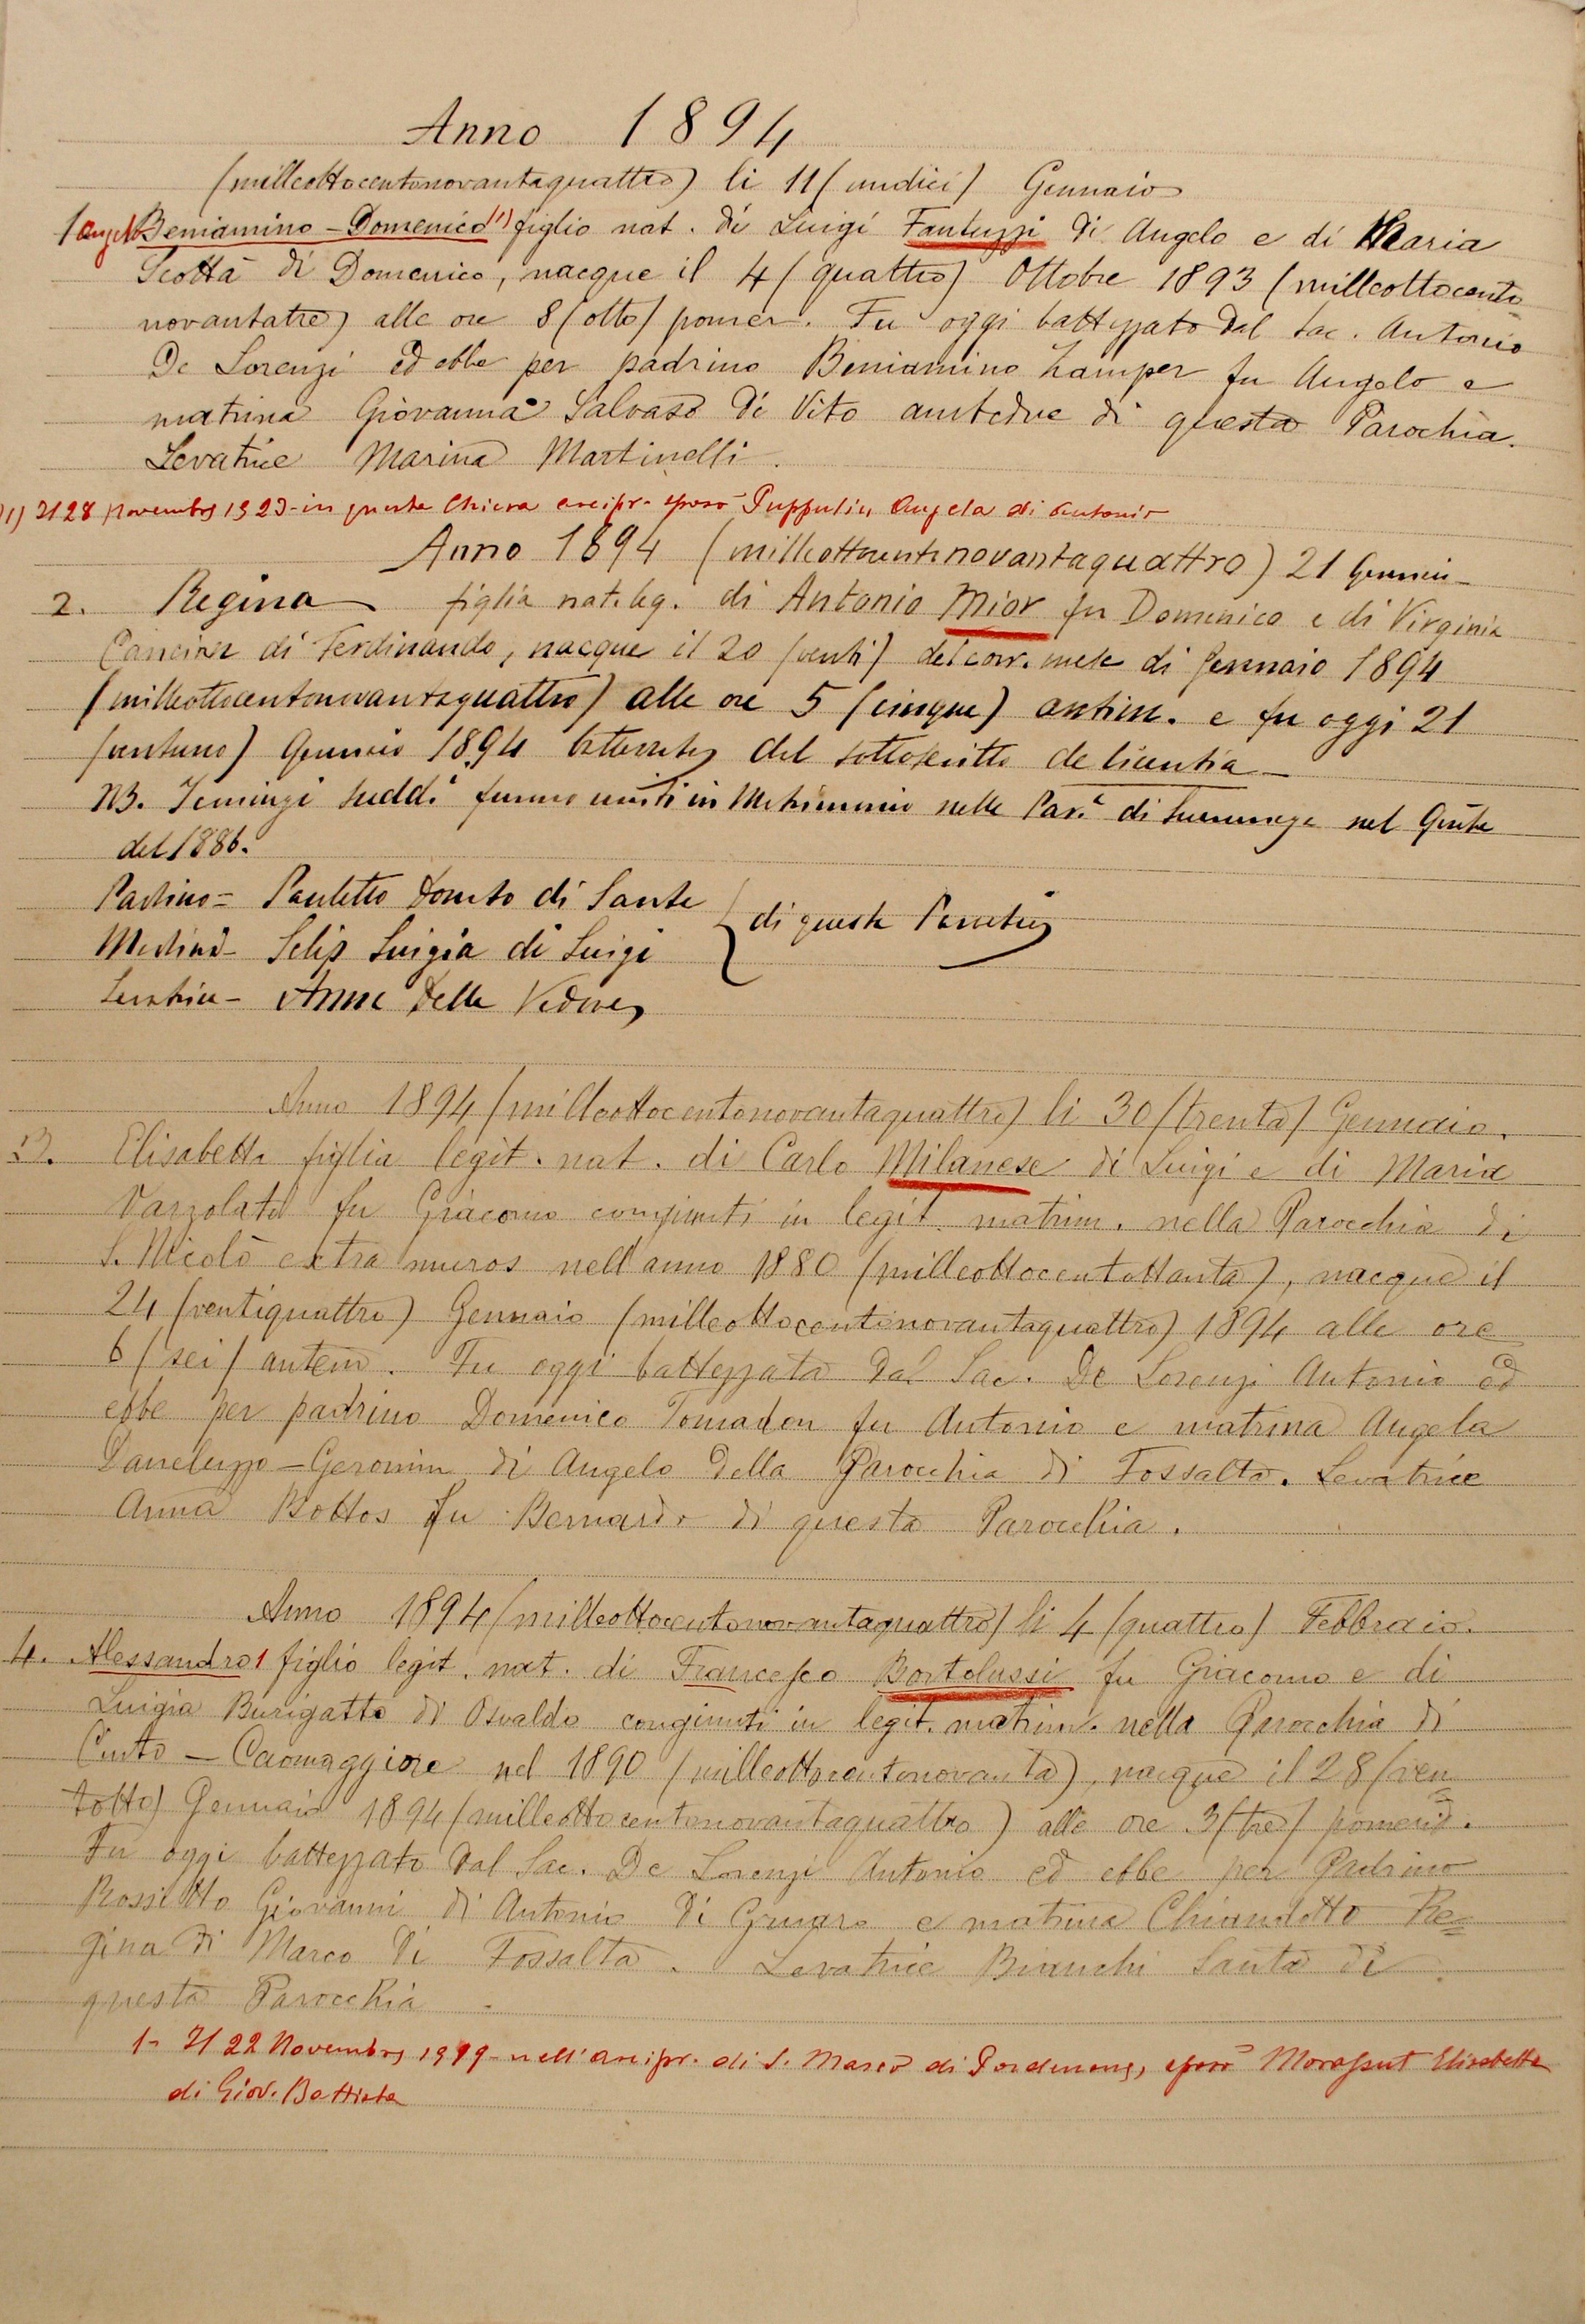 Anno 1894
(milleottocentonovantaquattro) li 11 (undici) Gennaio
1 Angelo Beniamino - Domenico (1) figlio nat. di Luigi Fantuzzi di Angelo e di Maria
Scottà di Domenico, nacque il 4 (quattro) Ottobre 1893 (milleottocento
novantatre) alle ore 8 (otto) pomer. Fu oggi battezzato dal Sac. Antonio
De Lorenzi ed ebbe per padrino Beniamino Zamper fu Angelo e
matrina Giovanna Salvaso di Vito ambedue di questa Parochia.
Levatrice Marina Martinelli.
(1) Il 28 Novembre 1923 - in questa Chiesa arcipr. sposò Puppulin Angela di Antonio
Anno 1894 (milleottocentonovantaquattro) 21 Gennaio
2. Regina figlia nat. leg. di Antonio Mior fu Domenico e di Virginia
di Ferdinando, nacque il 20 (venti) del corr. mese di Gennaio 1894
(milleottocentonovantaquattro) alle ore 5 (cinque) antim. e fu oggi 21
(ventuno) Gennaio 1894 battezzata dal sottoscritto de licentia
NB. I coniugi sudd.i furono uniti in Matrimonio nella Par.a di nel
del 1886.
Padrino = Pauletto Donato di Sante
Madrina - Selip Luigia di Luigi } di questa Parocchia
Levatrice - Anna Delle Vedove
Anno 1894 (milleottocentonovantaquattro) li 30 (trenta) Gennaio.
3. Elisabetta figlia legit. nat. di Carlo Milanese di Luigi e di Maria
Varzolato fu Giacomo congiunti in legit. matrim. nella Parocchia di
S. Nicolò extra muros nell'anno 1880 (milleottocentottanta), nacque il
24 (ventiquattro) Gennaio (milleottocentonovantaquattro) 1894 alle ore
6 (sei) antem. Fu oggi battezzata dal Sac. De Lorenzi Antonio ed
ebbe per padrino Domenico Tomadon fu Antonio e matrina Angela
Daneluzzo - Geronim di Angelo della Parocchia di Fossalta. Levatrice
Anna Bottos fu Bernardo di questa Parocchia.
Anno 1894 (milleottocentonovantaquattro) li 4 (quattro) Febbraio.
4. Alessandro 1 figlio legit. nat. di Francesco Bortolussi fu Giacomo e di
Luigia Burigatto di Osvaldo congiunti in legit. matrim. nella Parocchia di
Cinto - Caomaggiore nel 1890 (milleottocentonovanta), nacque il 28 (ven
totto) Gennaio 1894 (milleottocentonovantaquattro) alle ore 3 (tre) pomerid.
Fu oggi battezzato dal Sac. De Lorenzi Antonio ed ebbe per Padrino
Rossitto Giovanni di Antonio di Gruaro e matrina Chiandotto Re=
gina di Marco di Fossalta. Levatrice Bianchi Santa di
questa Parocchia.
1- Il 22 Novembre 1919 - nell'arcipr. di S. Marco di Pordenone, sposò Morassut Elisabetta
di Giov. Battista